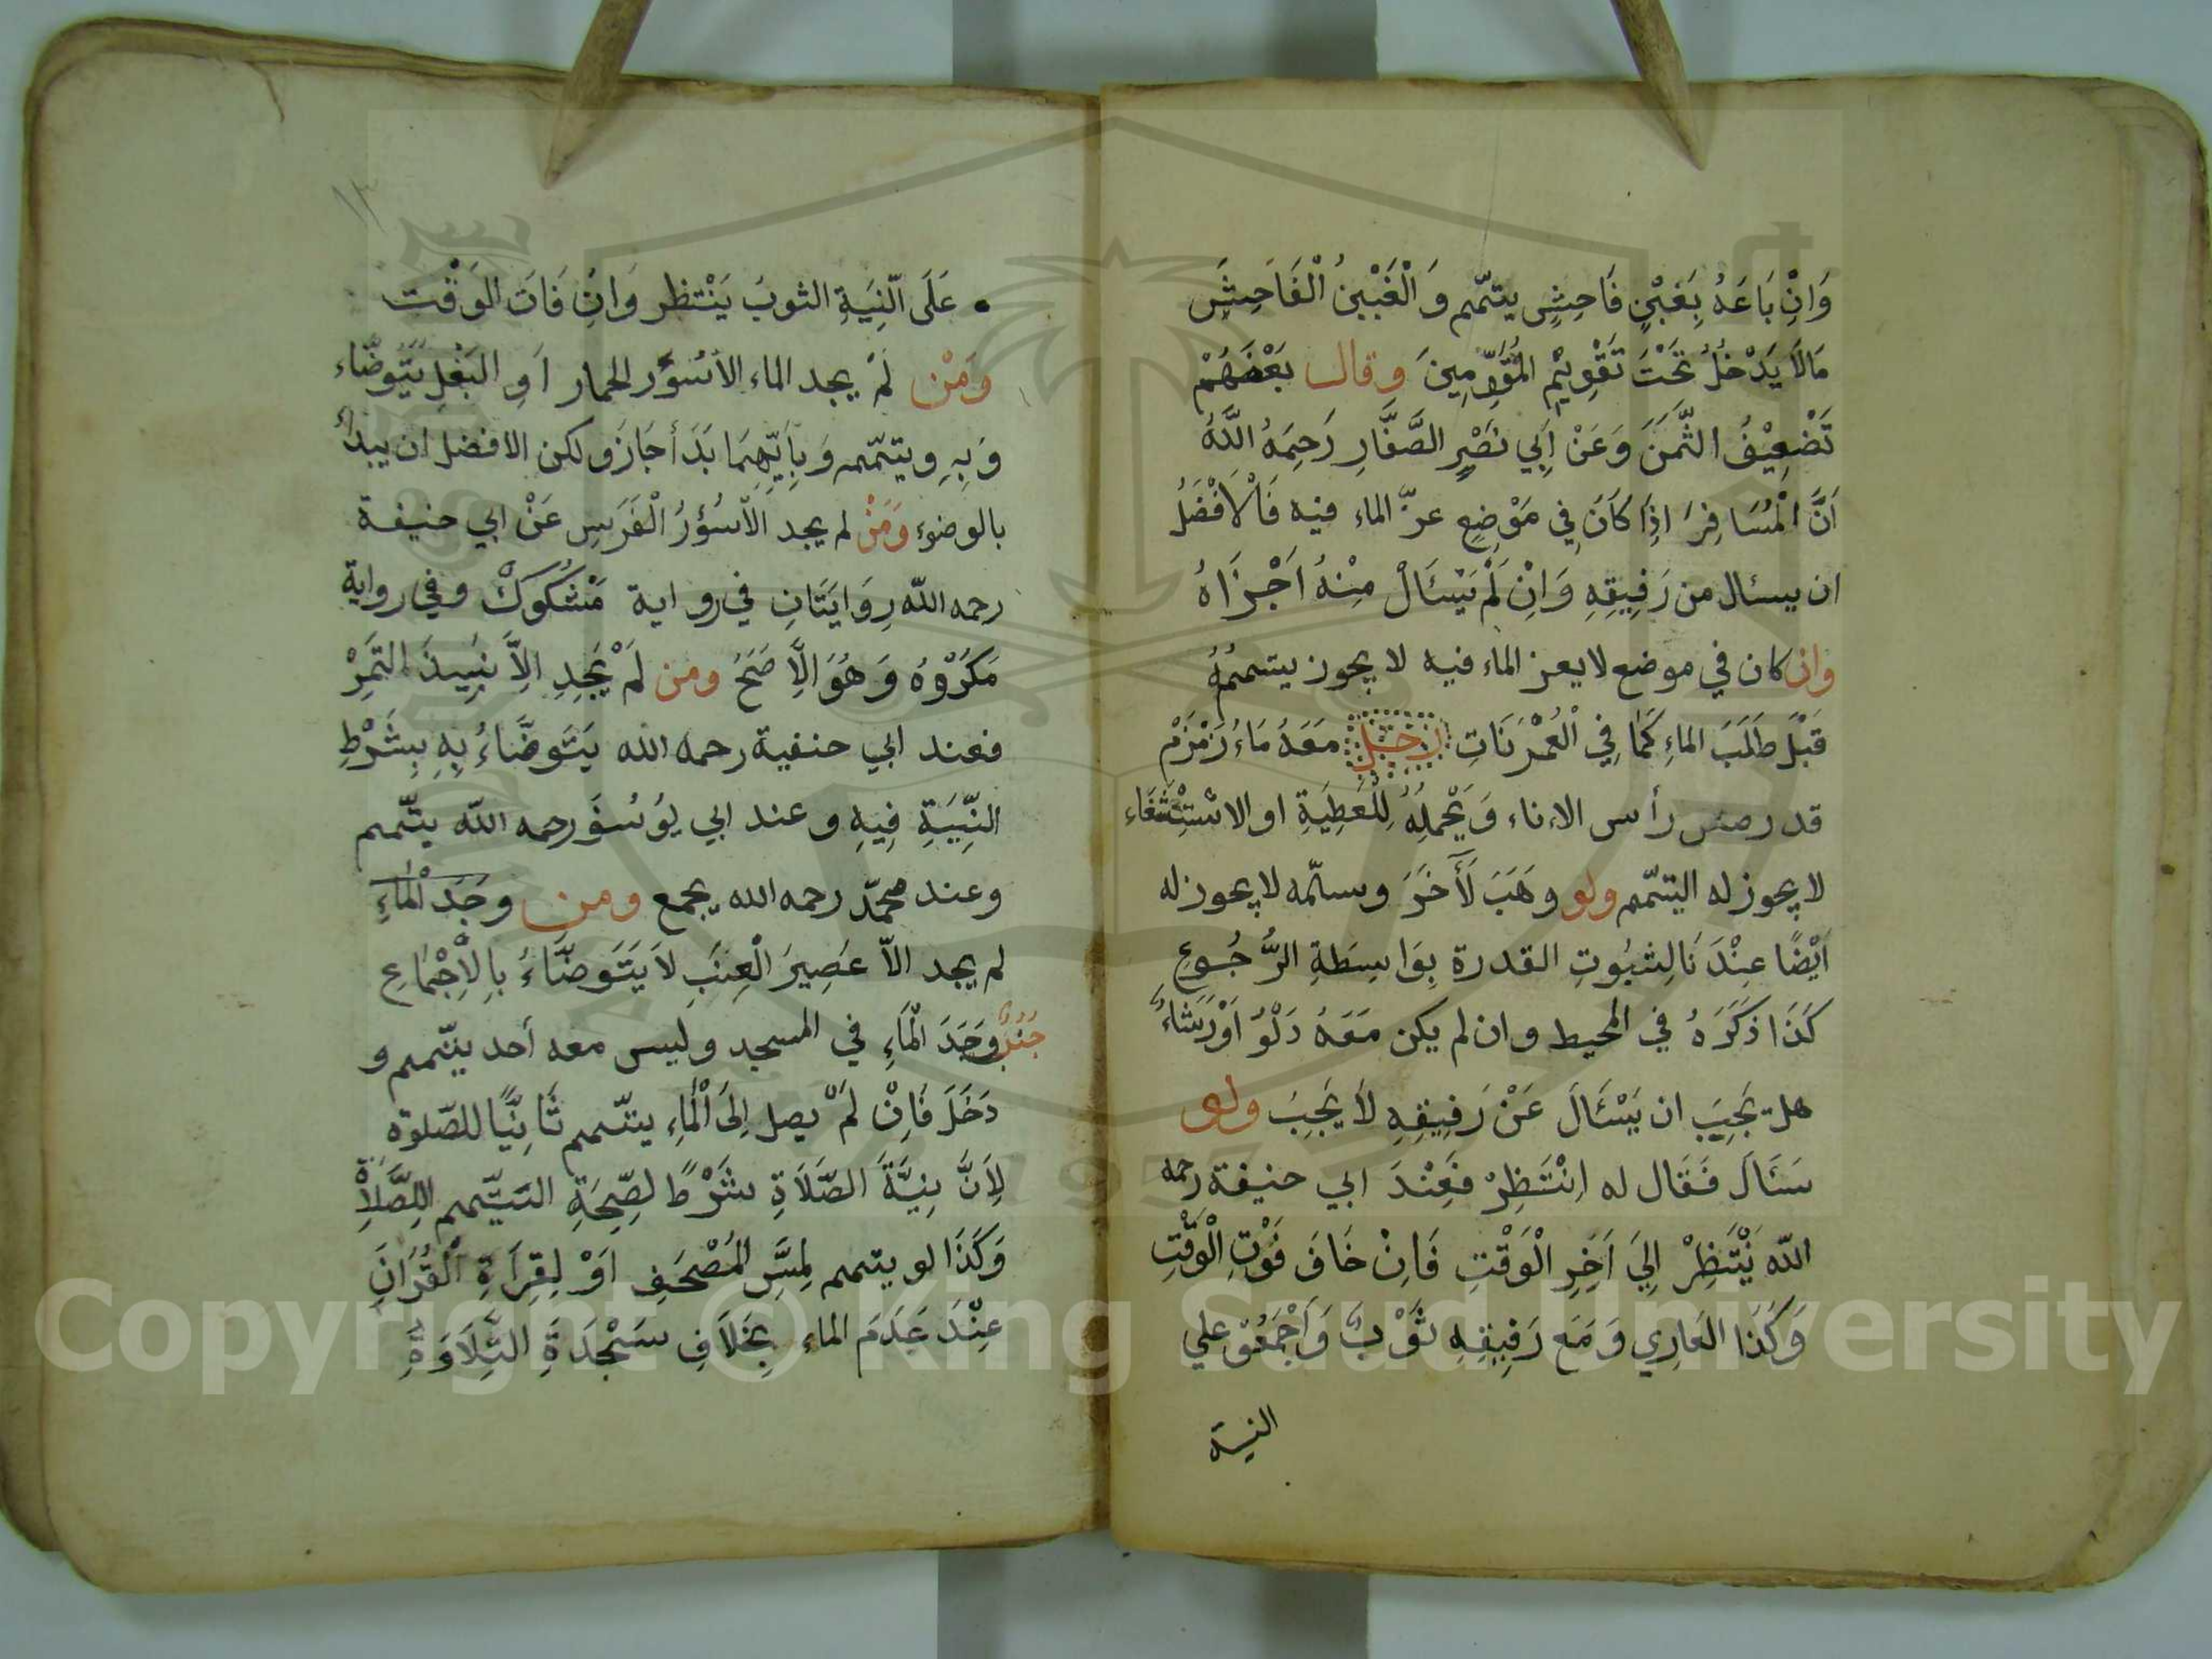 وَاِنْ بَاعَهُ بِغَبْنٍ فَاحِشٍ يتيمّم وَالْغَبْنُ الْفَاحِشِ
مَالَا يَدْخُلُ تَحْتَ تَقْوِيْمِ الْمُقَوِّمِينَ وقال بَعْضُهُمْ
تَضْعِيْفُ الثَّمَنَ وَعَنْ اَبِي نَصْرٍ الصَّفَّارِ رَحِمَهُ اللَّهُ
اَنَّ الْمُسَافِرَ اِذَا كَانَ فِي مَوْضِعٍ عزّ الماء فيه فَالْاَفْضَلُ
ان يسئال من رَفِيقِهِ وَاِنْ لَمْ يَسْئَالْ مِنْهُ اَجْزَاهُ
وان كان في موضع لا يعز الماء فيه لا يجوز يتيممُهُ
قَبْلَ طَلَبَ الماءِ كَمَا فِي الْعُمْرَنَاتِ رجل مَعَهُ مَاءُ زَمْزَمْ
قد رصص رأس الاناء وَيَحْمِلُهُ لِلْعَطِيَةِ او الاسْتِشْفَاء
لا يجوز له التيمّم ولو وهَبَ لَأَخَرَ وسلّمه لا يجوز له
اَيْضًا عِنْدَنَا لِثُبُوتِ القدرة بِوَاسِطَةِ الرُّجُوعِ
كَذَا ذَكَرَهُ في المحيط وان لم يكن مَعَهُ دَلْوُ اَوْ رَشَاءُ
هل يَجِبَ ان يَسْئَالَ عَنْ رَفِيقِهِ لَا يَجِبَ ولو
سَئَالَ فَقَال له اِنْتَظِرْ فَعِنْدَ ابي حنيفة رحمه
اللّه يَنْتَظِرْ اِلَي اَخِرِ الْوَقْتِ فَاِنْ خَافَ فَوْتِ الْوَقْتِ
وَكَذَا العَارِي وَمَع رَفِيقِهِ ثَوْبٌ وَاَجْمَعُوْ علي
النية
١٢
عَلَى النِّيَةِ الثوبُ يَنْتظر وَاِنْ فَاتَ الوَقْت
وَمَنْ لَمْ يجد الماء الاّ سُؤَر الحمار اَوِ البَغْلِ يَتَوضّاء
وَبِهِ ويتيمّم وَبِاَيِّهِمَا بَدَأَ جَازَ ولكن الافضل ان يبدَأ
بالوضوء وَمَنْ لم يجد الاّ سُؤْرُ الْفَرَسِ عَنْ ابي حنيفة
رحمه اللّه رِوَايَتَانِ في رواية مَشْكُوكْ وفي رواية
مَكْرُوْهُ وَهُوَ الاَصَحُ ومن لَمْ يَجِدِ اِلاَّ نَبِيذَ التَّمَرْ
فعند ابي حنفية رحمه الله يَتَوضَّاءُ بِهِ بِشَرْطِ
النِّيَةِ فِيهِ وعند ابي يوُسُفَ رحمه اللّه يتيمم
وعند محمّد رحمه الله يجمع ومن وجَدَ الْمَاءِ
لم يجد الاّ عَصِيرَ الْعِنَبِ لاَ يَتَوَضَّاءُ بالِاْجْمَاعِ
جُنُبٌ وَجَدَ الْمَاءِ في المسجد وليس معه أحد يتيمم و
دَخَلَ فَاِنْ لَمْ يصل اِلَى الْمَاءِ يتيمم ثَانِيًا للصّلوة
لِاَنَّ نِيَّةَ الصَّلَاةِ شَرْطًا لصِّحَةِ التيَمّم لِلصَّلاةِ
وَكَذَا لو يتيمم لِمَسِّ الْمُصْحَفِ اَوْ لِقِرَأَةِ الْقُرَانَ
عِنْدَ عَدَمَ الماء بِخَلَافِ سَجْدَةَ التِّلَاوَةِ